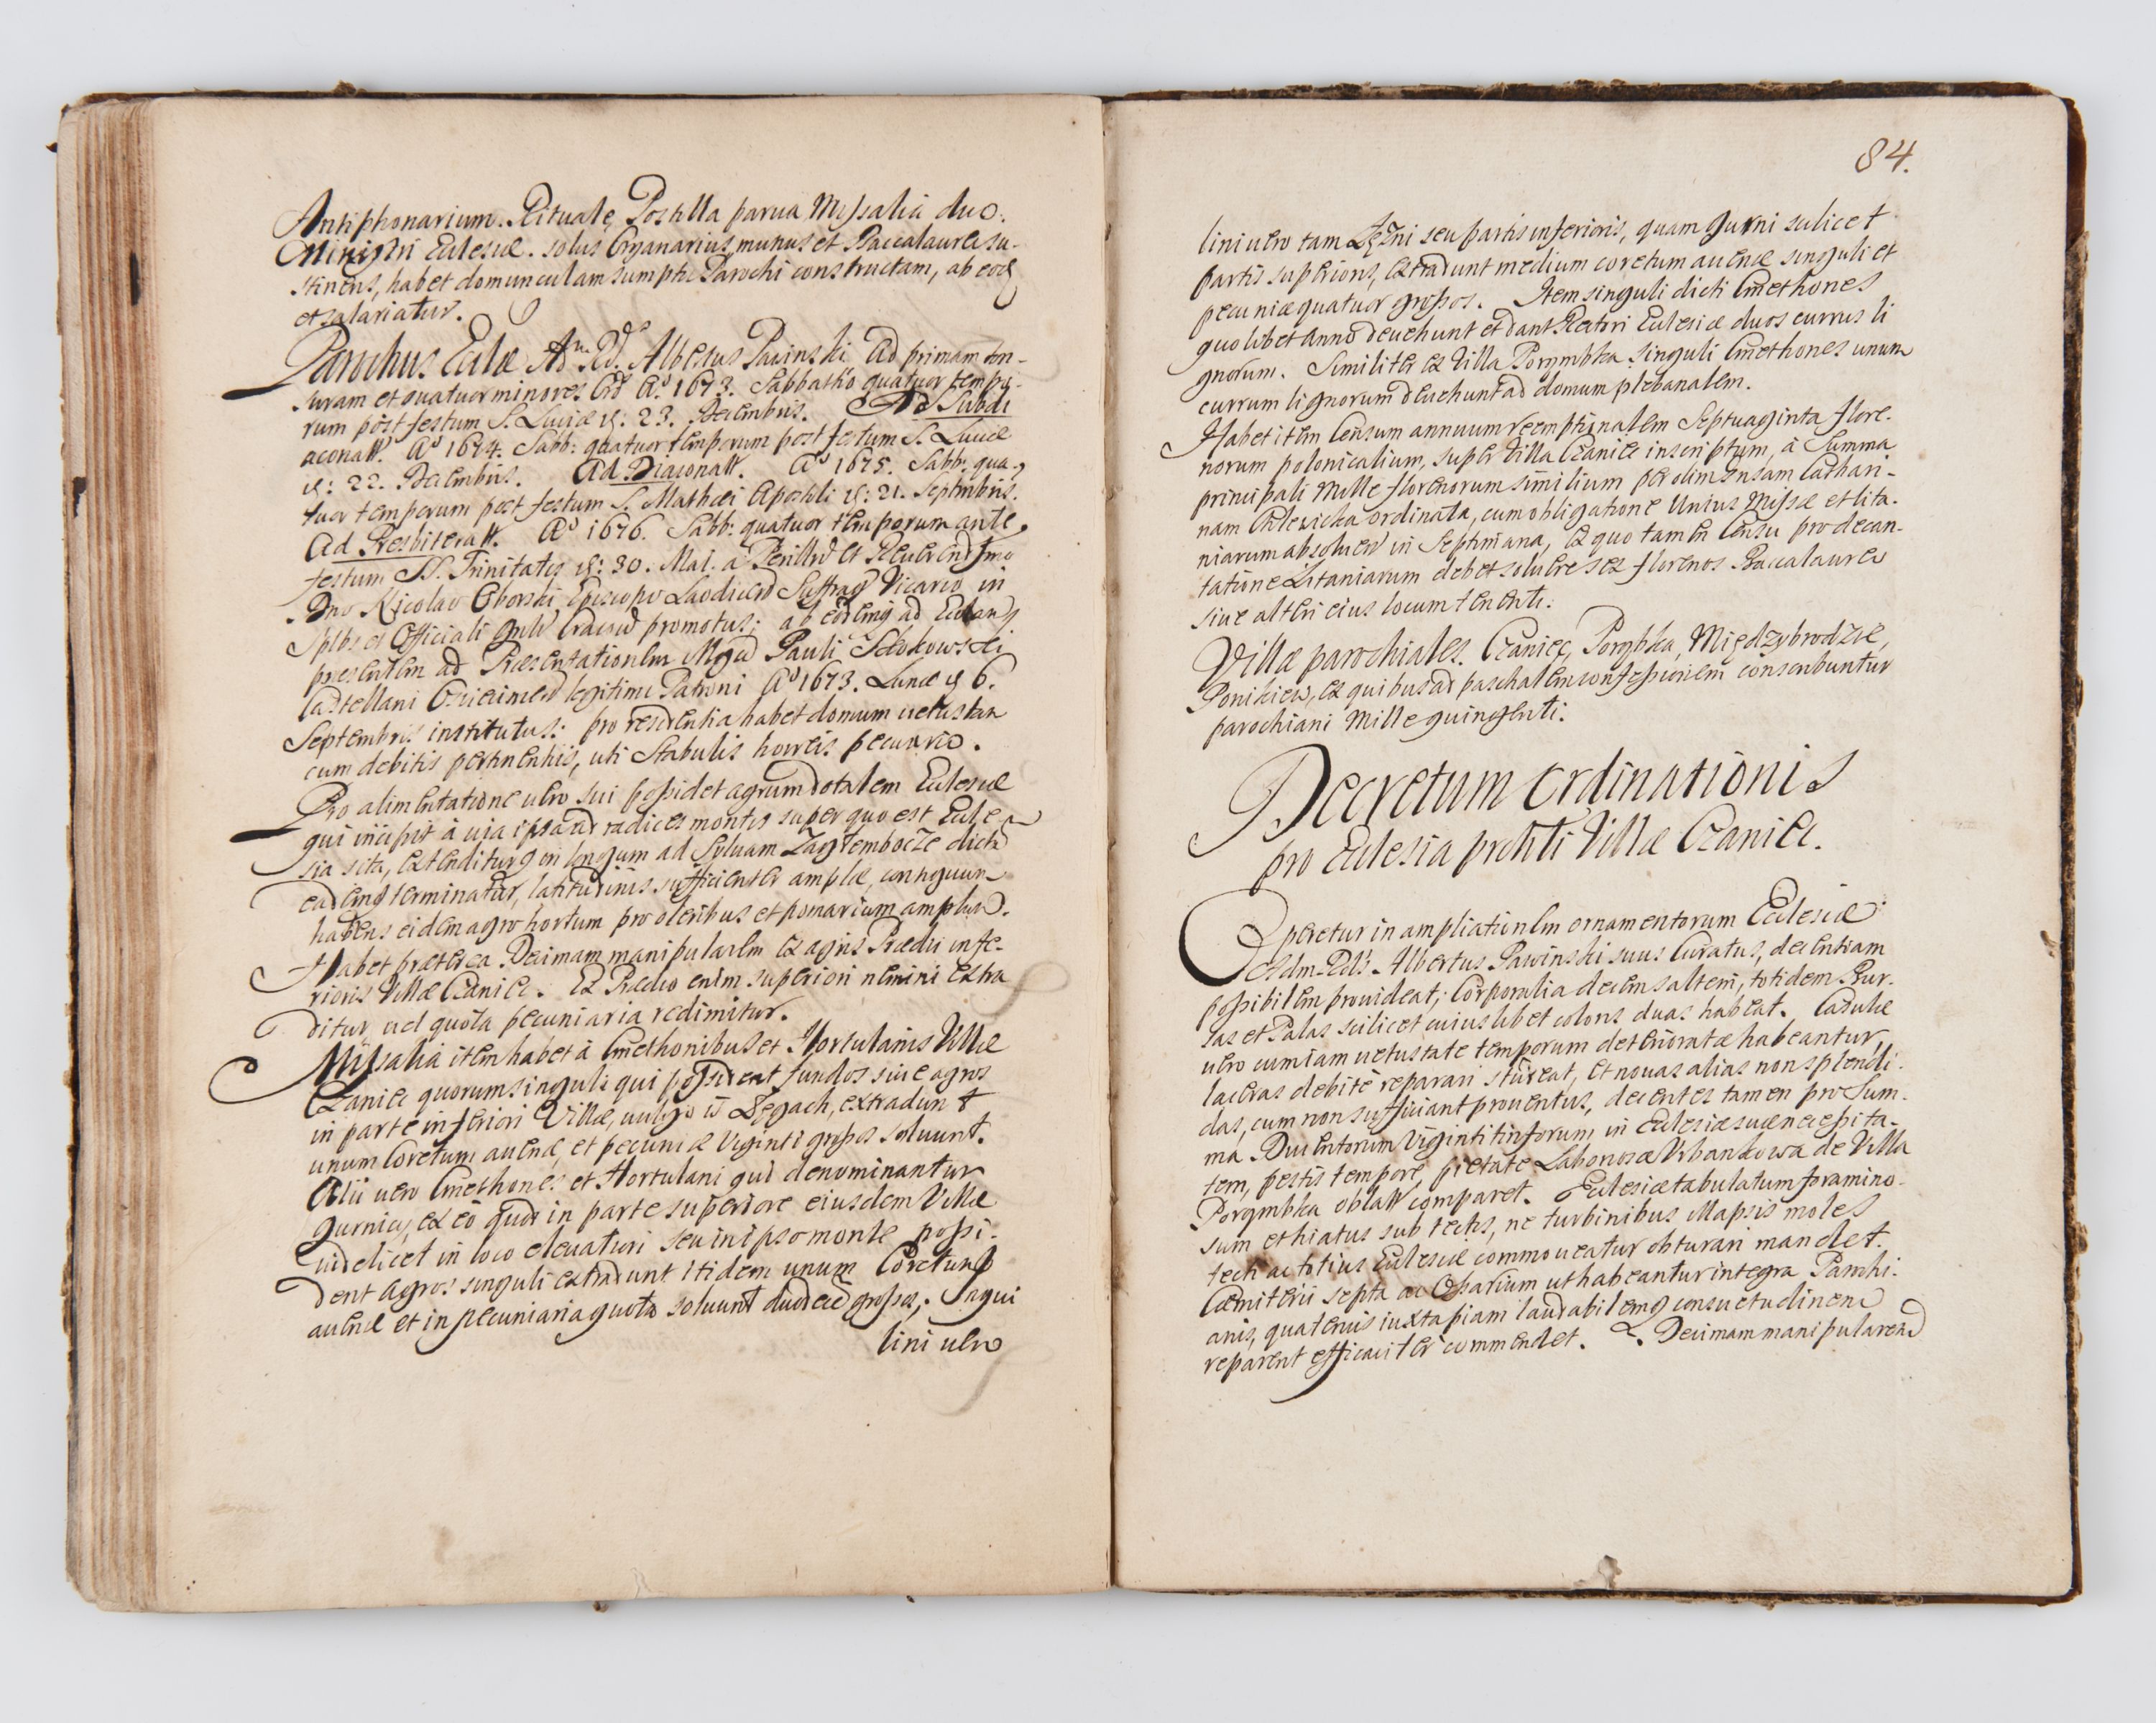 Antiphonarium. Rituale, Postilla parua Missalia duo.
Ministri Eclesiæ. solus Organarius, munus et Baccalaurei su-
stinens, habet domunculam sumptu Parochi constructam, ab eodē
et salariatur.
Parochus Eclæ Adm Rd. Albertus Pawinski Ad primam ton-
suram et quatuor minores Ord. Ao. 1673. Sabbatho quatuor tempo-
rum post festum S. Luciæ d: 23. Decembris. Ad Subdi
aconatt. Ao 1674. Sabb: quatuor temporum post festum S. Luciæ
d: 22. Decembris. Ad Diaconatt. Ao 1675. Sabb: qua-
tuor temporum post festum S. Mathæi Apostoli d: 21. Septembris.
Ad Presbiteratt. Ao 1676. Sabb: quatuor temporum ante
festum SS. Trinitatis d: 30. Mai. à Perillri et Reuerendssmo
Dno Nicolao Oborski Episcopo Laodicen Suffrag Vicario in
Splbs et Officiali Gnli Cracou promotus; ab eodemq ad Eclam
presentem ad Præsentationem Mgci Pauli
Castellani Osiecimen legitimi Patroni Ao 1673. Lunæ d 6.
Septembris institutus: pro residentia habet domum uetustam
cum debitis pertinentiis, uti Stabulis horreis pecuario.
Pro alimentatione uero sui possidet agrum dotalem Eclesiæ
qui incipit à uia ipsa ad radices montis super quo est Ecle
sia sita, extenditurq in longum ad Syluam dicta
eademq terminatur, latitudinis sufficienter amplæ, contiguum
habens eidem agro hortum pro oleribus et pomarium amplum.
Habet præterea Decimam manipularem ex agris Prædii infe-
rioris Villæ Czaniec. Ex Prædio enim superiori nemini extra
ditur, uel quota pecuniaria redimitur.
Missalia item habet à Cmethonibus et Hortulanis Villæ
Czaniec quorum singuli qui possident fundos siue agros
in parte inferiori Villæ, uulgo w Łęgach, extradunt
unum Coretum auenæ, et pecuniæ Viginti grossos soluunt.
Alii uero Cmethones et Hortulani qui denominantur
Gurnicy, ex eo quod in parte superiore eiusdem Villæ
uidelicet in loco eleuatiori seu in ipso monte possi-
dent agros singuli extradunt itidem unum Coretum
auenæ et in pecuniaria quota soluunt duodecē grossos; Inqui
lini uero
84.
lini uero tam Łężni seu partis inferioris, quam Gurni scilicet
partis superioris, extradunt medium coretum auenæ singuli et
pecuniæ quatuor grossos. Item singuli dicti Cmethones
quolibet Anno deuehunt et dant Rectori Eclesiæ duos currus li
gnorum. Similiter ex Villa Porąmbka singuli Cmethones unum
currum lignorum deuehunt ad domum plebanalem.
Habet item Censum annuum reemptionalem Septuaginta flore-
norum polonicalium, super Villa Czaniec inscriptum, à Summa
principali Mille florenorum similium per olim Gnsam Cathari-
nam ordinata, cum obligatione Unius Missæ et lita-
niarum absoluen in Septimana, ex quo tamen Censu pro decan-
tatione Litaniarum debet soluere sex florenos Baccalaureo
siue alteri eius locum tenenti.
Villæ parochiales. Czaniec, Porąbka, Międzybrodzie,
Ponikiew, ex quibus ad paschalem confessionem conscribuntur
parochiani Mille quingenti.
Decretum Ordinationis
pro Eclesia prtitti Villæ Czaniec.
Operetur in ampliationem ornamentorum Ecclesiæ
Adm Rds Albertus Pawinski suus Curatus, decentiam
possibilem prouideat; Corporalia decem saltem, totidem Pur-
sas et Palas scilicet cuiuslibet coloris duas habeat. Casulæ
uero cum iam uetustate temporum deterioratæ habeantur,
laceras debitè reparari studeat, et nouas alias non splendi-
das, cum non sufficiant prouentus, decentes tamen pro Sum-
ma Ducentorum Viginti tinforum, in Eclesiæ suæ necessita-
tem, pestis tempore, pietate Laboriosæ Urbankowa de Villa
Porąmbka oblatt comparet. Eclesiæ tabulatum foramino-
sum et hiatus sub tectis, ne turbinibus Massis moles
tecti ac totius Eclesiæ commoueatur obturari mandet.
Cæmiterii septa ac Ossarium ut habeantur integra Parochi-
anis, quatenus iuxta piam laudabilemq consuetudinem
reparent efficaciter commendet. Decimam manipularem